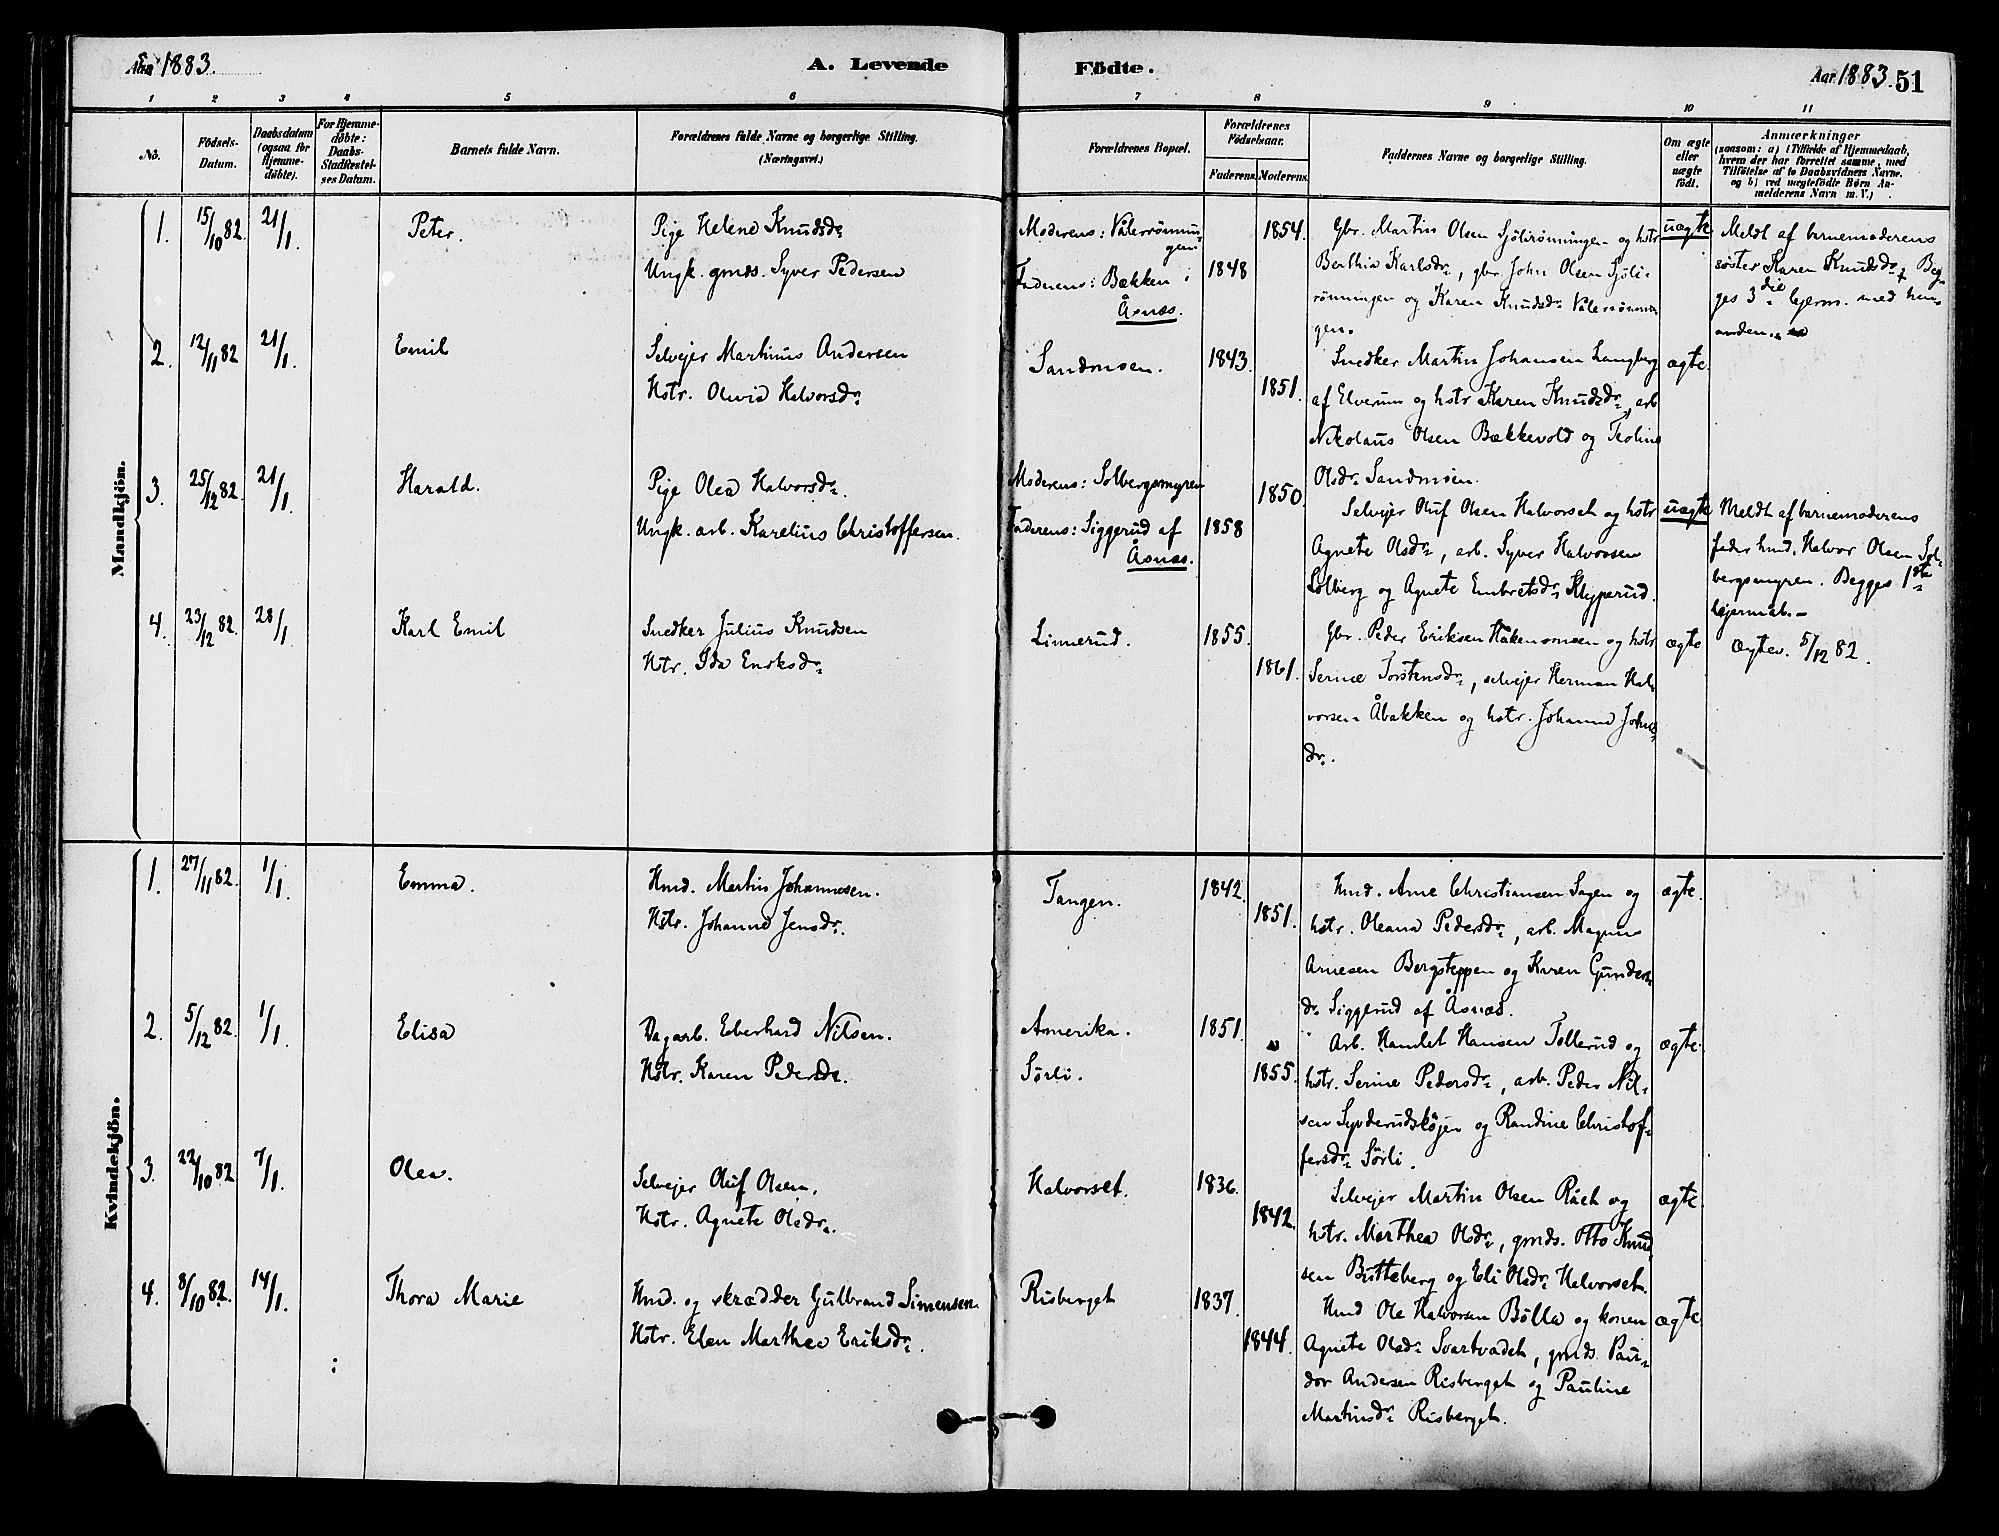 Aar 1883.
A. Levende Födte.
Aar 1883. 51
1 2 3 4 5 6 7 8 9 10 11
No.
Födsels-Datum.
Daabsdatum (ogsaa for Hjemme-døbte).
For Hjemme-døbte: Daabs-Stadfæstel-ses Datum.
Barnets fulde Navn.
Forældrenes fulde Navne og borgerlige Stilling.
(Næringsvei.)
Forældrenes Bopæl.
Forældrenes Födselsaar.
Faderens. Moderens.
Faddernes Navne og borgerlige Stilling.
Om ægte eller uægte født.
Anmærkninger
(saasom: a) i Tilfælde af Hjemmedaab,
hvem der har forrettet samme, med
Tilføielse af to Daabsvidners Navne.
og b) ved uægtefødte Børn An-
melderens Navn m. V.)
Mandkjön.
1. 15/10 82. 21/1. Peter.
Pige Helene Knudsdr.
Ungk. gmds. Syver Pedersen
Moderens: Vålerrønnin-
gen
Faderens: Bækken i
Åsnæs.
1848 1854.
Gbr. Martin Olsen Sjölirönningen og hstr
Berthia Karlsdr., gbr. John Olsen Sjöli-
rönningen og Karen Knudsdr. Vålerrønnin-
gen.
uægte
Meldt af barnemoderens
søster Karen Knudsdr. Beg-
ges 3die lejerm. med hin-
anden.
2. 12/11 82 21/1. Emil
Selvejer Martinus Andersen
Hstr. Olivia Halvorsdr.
Sandmoen. 1843. 1851.
Snedker Martin Johansen Langberg
af Elverum og hstr Karen Knudsdr., arb.
Nikolaus Olsen Bækkevold og Teoline
Olsdr. Sandmoen.
ægte.
3. 25/12 82. 21/1. Harald.
Pige Olea Halvorsdr.
Ungk. arb. Karelius Christoffersen.
Moderens: Solbergsmyren
Faderens: Siggerud af
Åsnæs.
1858 1850.
Selvejer Oluf Olsen Halvorset og hstr
Agnete Olsdr., arb. Syver Halvorsen
Solberg og Agnete Embretsdr. Klyperud.
uægte
Meldt af barnemoderens
fader hmd. Halvor Olsen Sol-
bergsmyren. Begges 1ste
lejermål.
4. 23/12 82. 28/1. Karl Emil
Snedker Julius Knudsen
Hstr. Ida Eriksdr.
Linnerud. 1855. 1861.
Gbr. Peder Eriksen Håkensmoen og hstr
Serine Torstensdr., selvejer Herman Hal-
vorsen Åbakken og hstr. Johanne Johns-
dr.
ægte
Ægtev. 5/12 82.
Kvindekjön.
1. 27/11 82. 1/1. Emma.
Hmd. Martin Johannesen.
Hstr. Johanne Jensdr.
Tangen. 1842. 1851.
Hmd. Arne Christiansen Sagen og
hstr. Oleana Pedersdr., arb. Magnus
Arnesen Bergsteppen og Karen Gunders-
dr. Siggerud af Åsnæs.
ægte.
2. 5/12 82. 1/1. Elisa
Dagarb. Eberhard Nilsen.
Hstr. Karen Pedersdr.
Amerika.
Sörli.
1851. 1855.
Arb. Hamlet Hansen Tollerud og
hstr. Serine Pedersdr., arb. Peder Nil-
sen Synderudskøjen og Randine Christof-
fersdr. Sörli.
ægte.
3. 22/10 82 7/1. Olea.
Selvejer Oluf Olsen.
Hstr. Agnete Olsdr.
Halvorset. 1836. 1842.
Selvejer Martin Olsen Rået og
hstr. Marthea Olsdr., gmds. Otto Knud-
sen Britteberg og Eli Olsdr. Halvorset.
ægte.
4. 8/10 82. 14/1. Thora Marie
Hmd. og skrædder Gulbrand Simensen.
Hstr. Elen Marthea Eriksdr.
Risberget 1837. 1844.
Hmd Ole Halvorsen Bölla og konen
Agnete Olsdr. Svartvadet, gmds. Pau-
der Andersen Risberget og Pauline
Martinsdr. Risberget.
ægte.